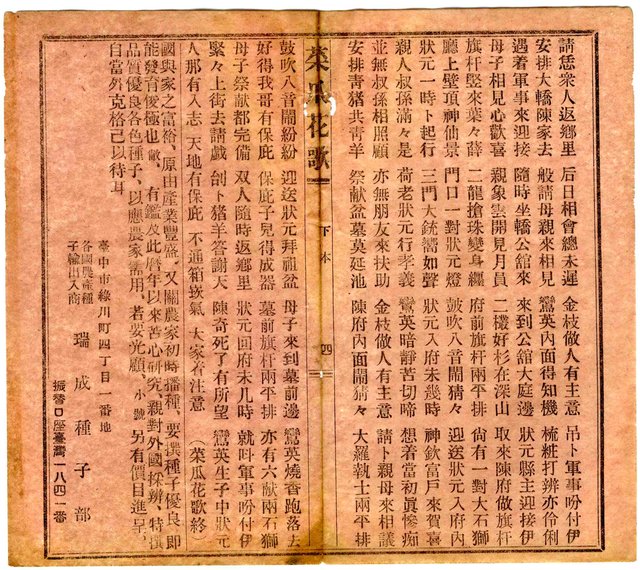 請恁衆人返鄉里 后日相會總未遲 金枝做人有主意 吊卜軍事吩付伊
安排大轎陳家去 般請母親來相見 鸞英內面得知機 梳粧打辨亦伶俐
遇着軍事來迎接 隨時坐轎公舘來 來到公舘大庭邊 狀元縣主迎接伊
母子相見心歡喜 親象雲開見月員 二欉好杉在深山 取來陳府做旗杆
旗杆竪來葉々薛 二龍搶珠變身纒 府前旗杆兩平排 尙有一對大石獅
廳上壁頂神仙景 門口一對狀元燈 鼓吹八音鬧猜々 迎送狀元入府內
狀元一時卜起行 三門大銃嚮如聲 狀元入府未幾時 神欽富戶來賀喜
親人叔孫滿々是 荷老狀元行孝義 鸞英暗靜苦切啼 想着當初眞慘痴
並無叔孫相照顧 亦無朋友來扶助 金枝做人有主意 請卜母親來相議
安排靑猪共靑羊 祭献盆墓莫延池 陳府內面鬧猜々 大羅執士兩平排
菜瓜花歌 下本 四
鼓吹八音鬧紛紛 迎送狀元拜祖盆 母子來到墓前邊 鸞英燒香跑落去
好得我哥有保庇 保庇子兒得成器 墓前旗杆兩平排 亦有六献兩石獅
母子祭献都完備 双人隨時返鄉里 狀元回府未几時 就叫軍事吩付伊
緊々上街去請戲 刣卜猪羊答謝天 陳奇死了有所望 鸞英生子中狀元
人那有入志 天地有保庇 不通箱崁氣 大家着注意 (菜瓜花歌終
國與家之富裕、原由產業豐盛、又關農家初時播種、要撰種子優良、即
能發育俊極也歟、有鑑及此曆年以來苦心研究、親對外國採辨、特撰
品質優良各色種子、以應農家需用、若要光顧、小號另有價目進呈、
自當外克格己以待耳
臺中市綠川町四丁目一番地
各國農產種子輸出入商 瑞成種子部
振替口座臺灣一八四一番